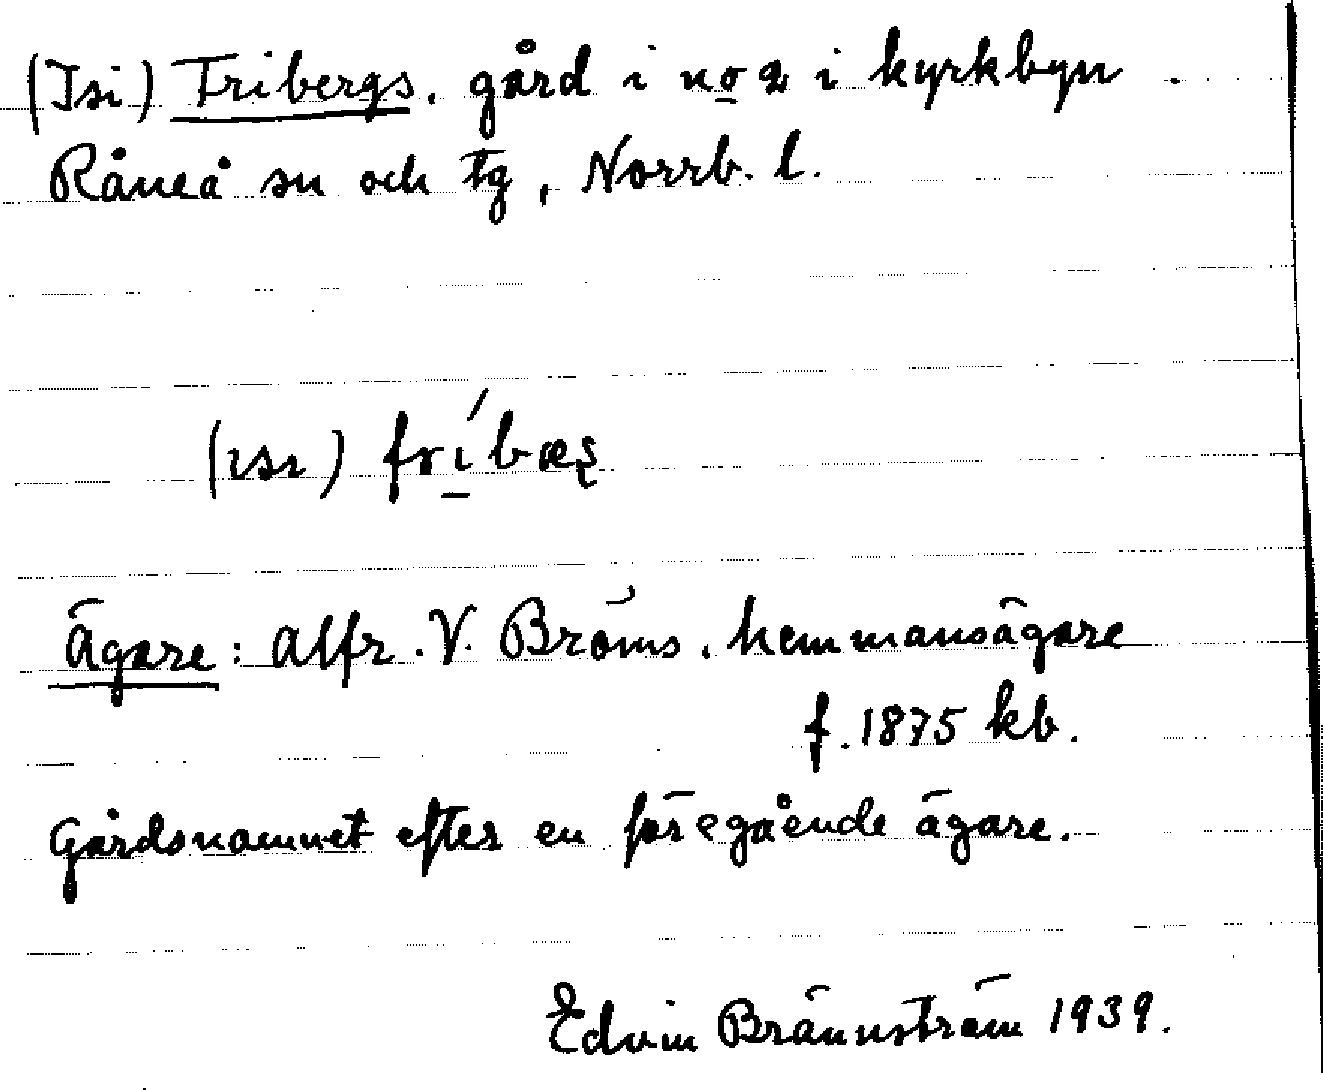 (Isi) Fribergs. gård i no 2 i kyrkbyn.
Råneå sn och tg, Norrb. l.
(ısı) frı̱́bæş
Ägare: Alfr. V. Bröms. hemmansägare
f. 1875 kb.
Gårdsnamnet efter en föregående ägare.
Edvin Brännström 1939.